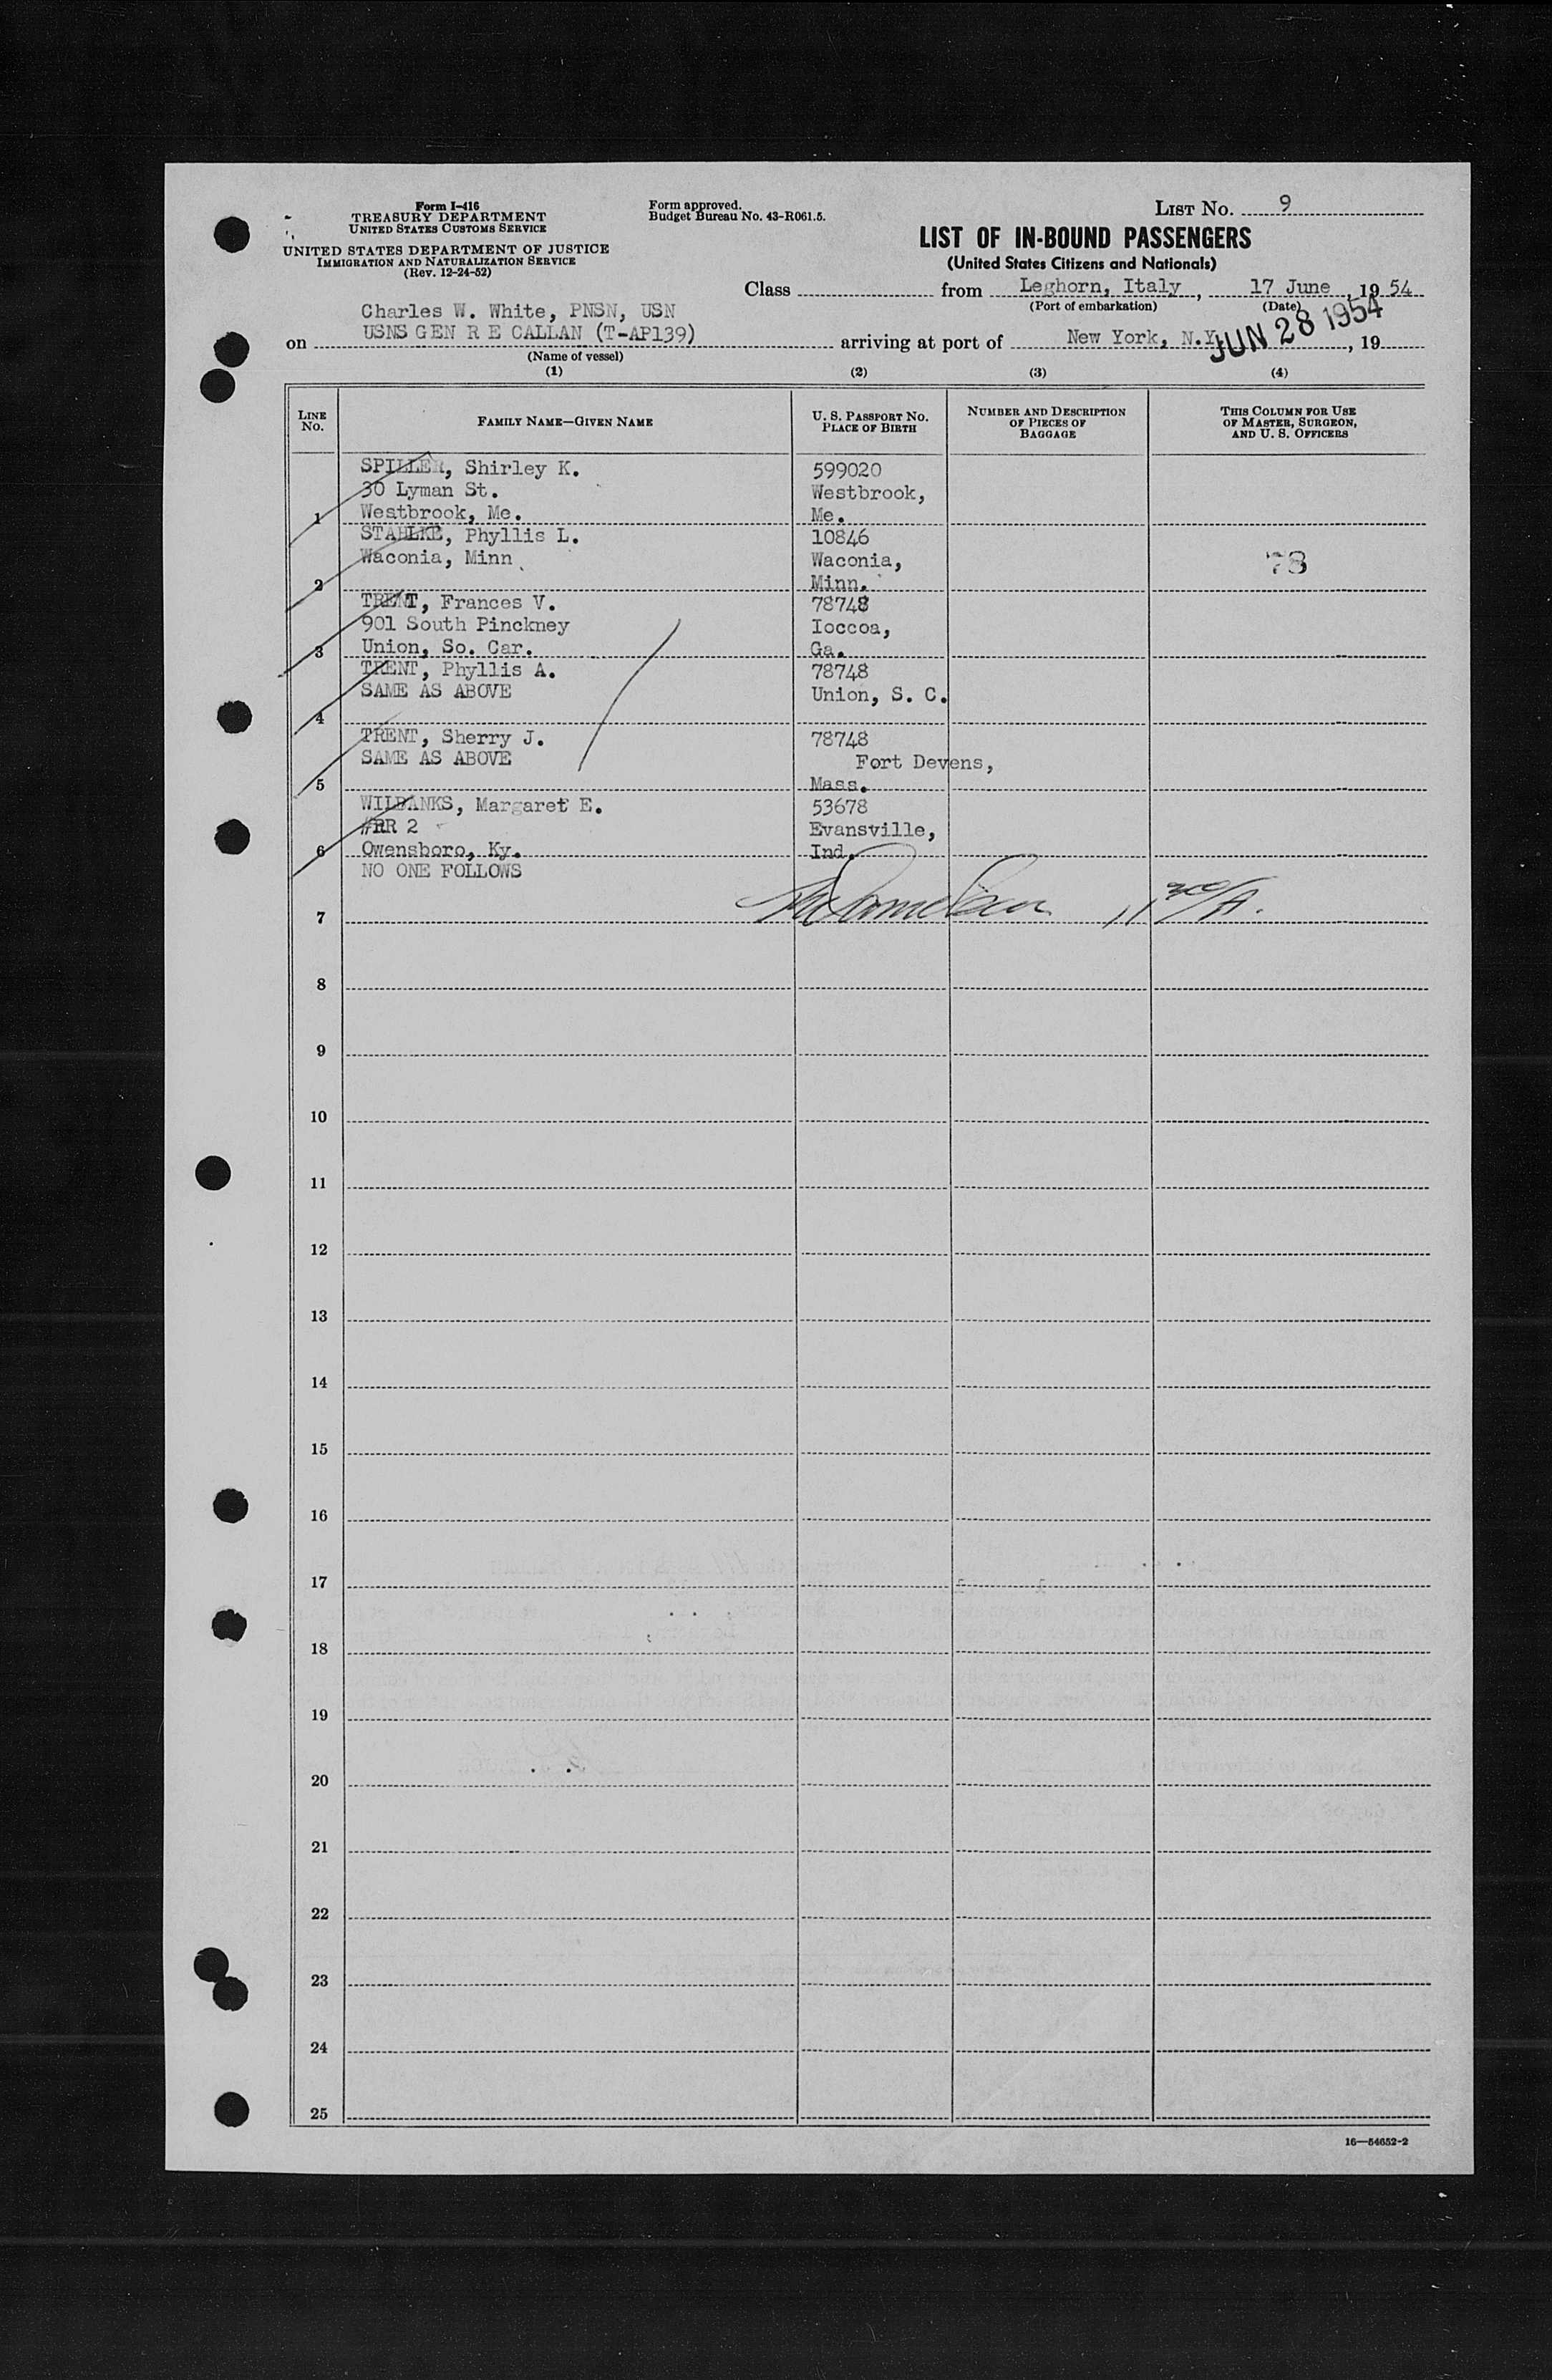 Form I-416
TREASURY DEPARTMENT
UNITED STATES CUSTOMS SERVICE
UNITED STATES DEPARTMENT OF JUSTICE
IMMIGRATION AND NATURALIZATION SERVICE
(Rev. 12-24-52)
Form approved.
Budget Bureau No. 43-R061.5.
LIST No. 9
LIST OF IN-BOUND PASSENGERS
(United States Citizens and Nationals)
Class from Leghorn, Italy, 17 June, 1954
(Port of embarkation) (Date)
Charles W. White, PNSN, USN
on USNS GEN R E CALLAN (T-AP139) arriving at port of New York, N.Y. JUN 28 1954, 19
(Name of vessel)
(1) (2) (3) (4)
LINE No. FAMILY NAME—GIVEN NAME U. S. PASSPORT NO. PLACE OF BIRTH NUMBER AND DESCRIPTION OF PIECES OF BAGGAGE THIS COLUMN FOR USE OF MASTER, SURGEON, AND U. S. OFFICERS
SPILLER, Shirley K. 599020
30 Lyman St. Westbrook,
1 Westbrook, Me. Me.
STAHLKE, Phyllis L. 10846
Waconia, Minn Waconia, 78
2 Minn.
TRENT, Frances V. 78748
901 South Pinckney Ioccoa,
3 Union, So. Car. Ga.
TRENT, Phyllis A. 78748
SAME AS ABOVE Union, S. C.
4
TRENT, Sherry J. 78748
SAME AS ABOVE Fort Devens,
5 Mass.
WILBANKS, Margaret E. 53678
#RR 2 Evansville,
6 Owensboro, Ky. Ind.
NO ONE FOLLOWS
7 11 30/A.
8
9
10
11
12
13
14
15
16
17
18
19
20
21
22
23
24
25
16—54652-2